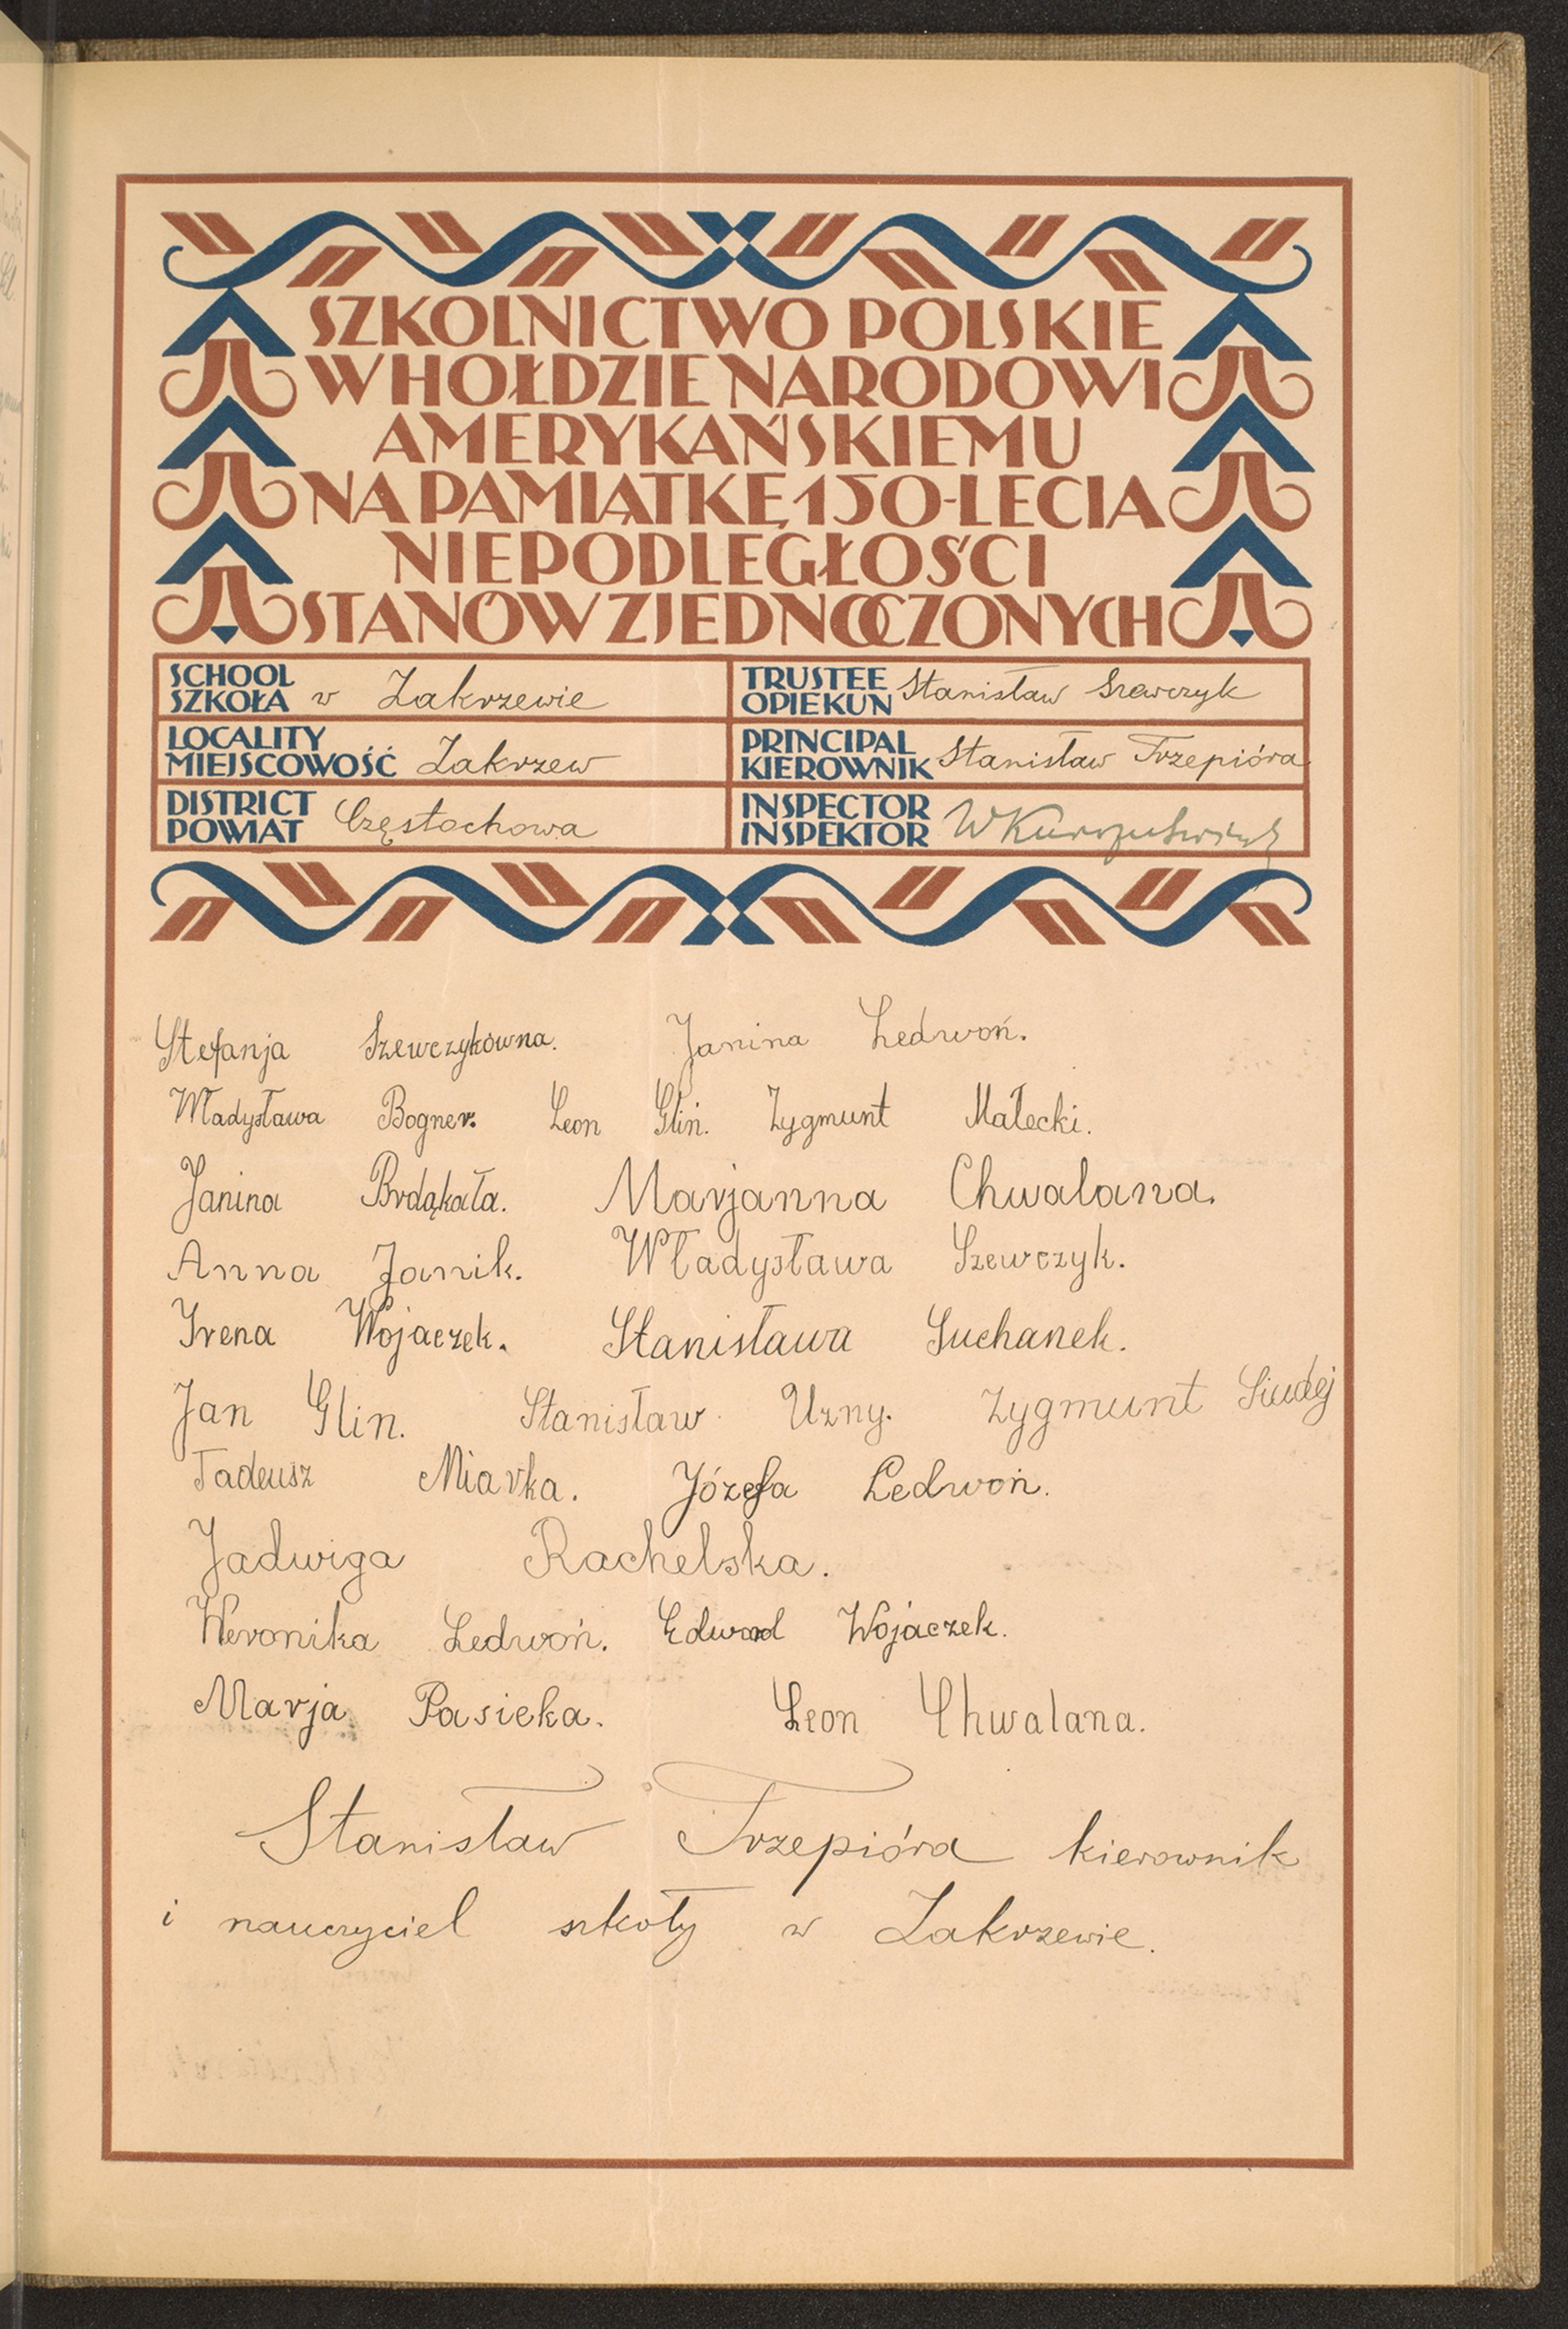 SZKOLNICTWO POLSKIE
W HOŁDZIE NARODOWI
AMERYKAŃSKIEMU
NA PAMIĄTKĘ 150-LECIA
NIEPODLEGŁOŚCI
STANÓW ZJEDNOCZONYCH
SCHOOL
SZKOŁA w Zakrzewie
TRUSTEE
OPIEKUN Stanisław Szewczyk
LOCALITY
MIEJSCOWOŚĆ Zakrzew
PRINCIPAL
KIEROWNIK Stanisław Trzepióra
DISTRICT
POWIAT Częstochowa
INSPECTOR
INSPEKTOR
Stefanja Szewczykówna. Janina Ledwoń.
Władysława Bogner. Leon Glin. Zygmunt Małecki.
Janina Brdąkała. Marjanna Chwalana.
Anna Janik. Władysława Szewczyk.
Irena Wojaczek. Stanisława Suchanek.
Jan Glin. Stanisław Uzny. Zygmunt Siudej
Tadeusz Miarka. Józefa Ledwoń.
Jadwiga Rachelska.
Weronika Ledwoń. Edward Wojaczek.
Marja Pasieka. Leon Chwalana.
Stanisław Trzepióra kierownik
i nauczyciel szkoły w Zakrzewie.